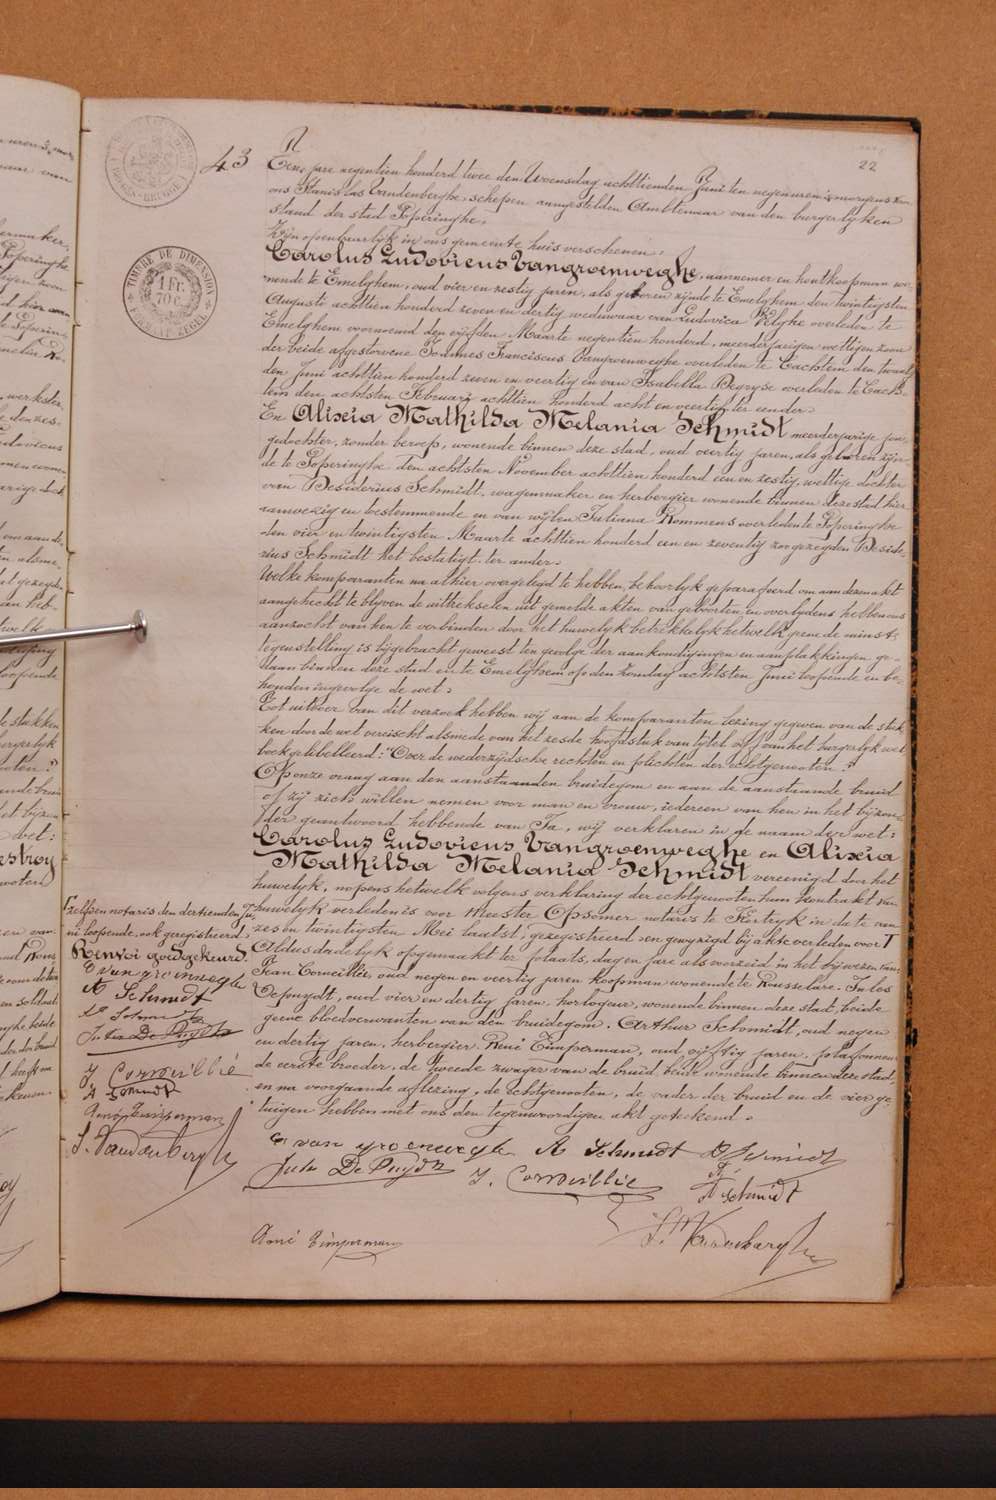 22
43
TIMBRE DE DIMENSION
1 Fr. 70 c.
Ten jare negentien honderd twee den Woensdag achttienden Juni ten negen uren 's morgens voor
ons Stanislas Vandenberghe schepen aangestelden Ambtenaar van den burgerlyken
stand der stad Poperinghe,
Zyn openbaarlyk in ons gemeente huis verschenen:
Carolus Ludovicus Vangroenweghe, aannemer en houtkoopman wo-
nende te Emelghem, oud vier en zestig jaren, als geboren zynde te Emelghem den twintigsten
Augusti achttien honderd zeven en dertig, weduwaar van Ludovica Velghe overleden te
Emelghem voornoemd den vyfden Maarte negentien honderd, meerderjarigen wettigen zoon
der beide afgestorvene Joannes Franciscus Vangroenweghe overleden te Cachtem den twaalf-
den Juni achttien honderd zeven en veertig en van Isabella Degryse overleden te Cach-
tem den achtsten February achttien honderd acht en veertig ter eender.
En Alixia Mathilda Melania Schmidt meerderjarige jon-
gedochter, zonder beroep, wonende binnen deze stad, oud veertig jaren, als geboren zyn-
de te Poperinghe den achtsten November achttien honderd een en zestig, wettige dochter
van Desiderius Schmidt, wagenmaker en herbergier wonende binnen deze stad hier
aanwezig en toestemmende en van wylen Juliana Rommens overleden te Poperinghe
den vier en twintigsten Maarte achttien honderd een en zeventig zoo gezegden Deside-
rius Schmidt het bestatigt. ter ander.
Welke komparanten na alhier overgelegd te hebben, behoorlyk geparafeerd om aan dezen akt
aangehecht te blyven de uittrekselen uit gemelde akten van geboorten en overlydens hebben ons
aanzocht van hen te verbinden door het huwelyk betrekkelyk hetwelk geene de minste
tegenstelling is bygebracht geweest ten gevolge der aankondigingen en aanplakkingen ge-
daan binnen deze stad en te Emelghem op den Zondag achtsten Juni loopende en be-
houden ingevolge de wet.
Tot uitvoer van dit verzoek hebben wy aan de komparanten lezing gegeven van de stuk-
ken door de wet vereischt alsmede van het zesde hoofdstuk van tytel vyf van het burgerlyk wet-
boek getitelleerd: "Over de wederzydsche rechten en plichten der echtgenooten."
Op onze vraag aan den aanstaanden bruidegom en aan de aanstaande bruid
of zy zich willen nemen voor man en vrouw, iedereen van hen in het byzon-
der geantwoord hebbende van Ja, wy verklaren in de naam der wet:
Carolus Ludovicus Vangroenweghe en Alixia
Mathilda Melania Schmidt vereenigd door het
huwelyk, nopens hetwelk volgens verklaring der echtgenooten hun kontrakt van
huwelyk verleden is voor Meester Opsomer notaris te in date van
zes en twintigsten Mei laatst, geregistreerd en gewyzigd by akte verleden voor T
Aldus dadelyk opgemaakt ter plaats, dag en jare als voorzeid in het bywezen van:
Jean Corneillie, oud negen en veertig jaren koopman wonende te Rousselare. Jules
Depuydt, oud vier en dertig jaren, horlogeur, wonende binnen deze stad, beide
geene bloedverwanten van den bruidegom. Arthur Schmidt, oud negen
en dertig jaren, herbergier. René Timperman, oud vyftig jaren, plafonneur
de eerste broeder, de tweede zwager van de bruid, beide wonende binnen deze stad,
en na voorgaande aflezing, de echtgenooten, de vader der bruid en de vier ge-
tuigen hebben met ons den tegenwoordigen akt geteekend.
zelfsen notaris den dertienden Ju-
ni loopende, ook geregistreerd.
Renvoi goedgekeurd.
C vangroenweghe
A Schmidt
D Schmidt
Jules De Puydt
J Corneillie
A Schmidt
René Timperman
S. Vandenberghe
C vangroenweghe A Schmidt D Schmidt
Jules De Puydt J. Corneillie A Schmidt
René Timperman S. Vandenberghe